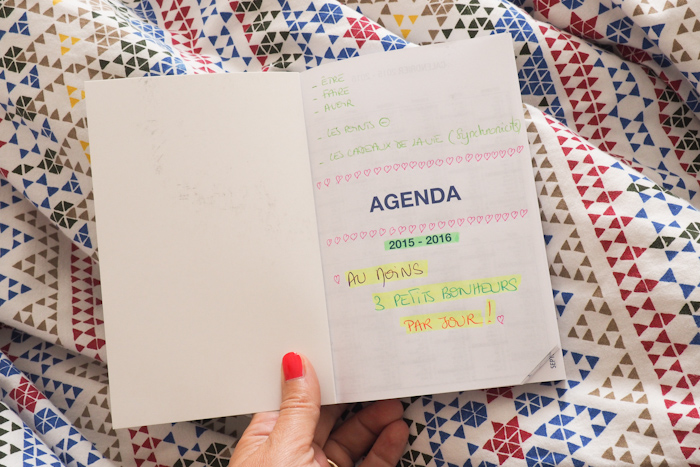 - ÊTRE
- FAIRE
- AVOIR
- LES
- LES CADEAUX DE LA VIE (Synchronicité)
AGENDA
2015 - 2016
AU MOINS
3 PETITS BONHEURS
PAR JOUR !